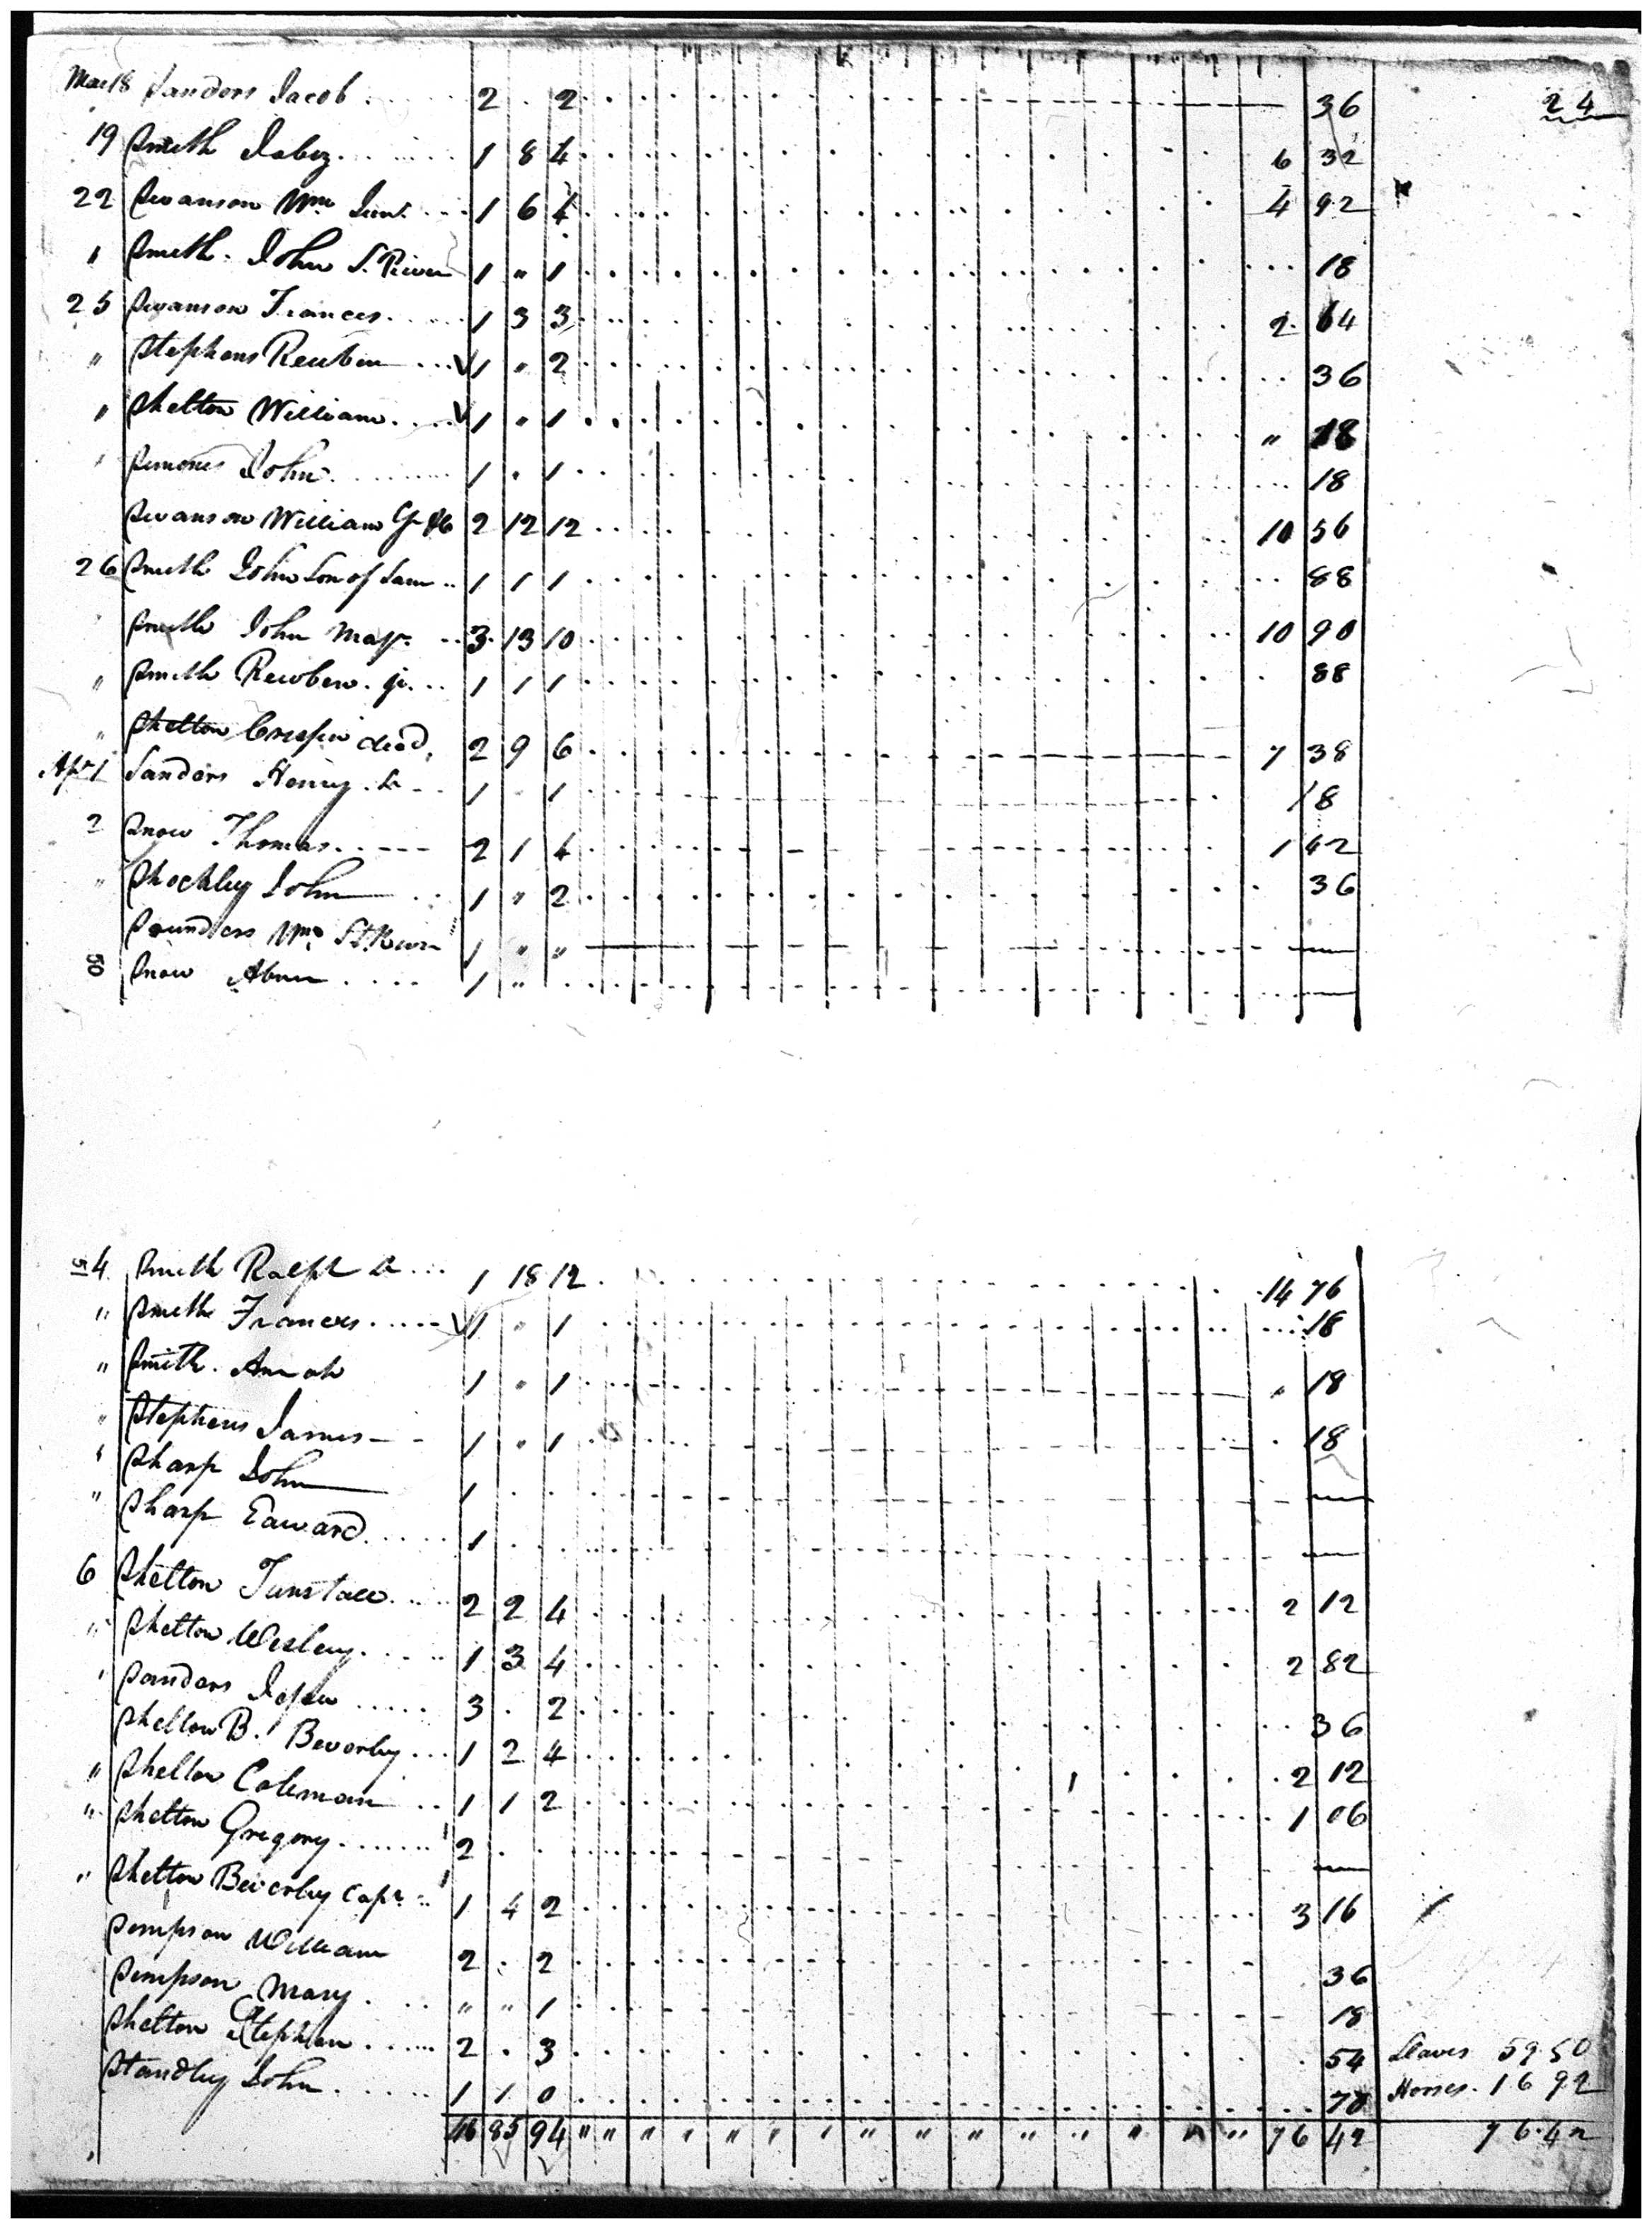 24
Mar 18 Sanders Jacob 2 . 2 36
19 Smith Jabez 1 8 4 6 32
22 Swanson Wm Junr 1 6 4 4 92
" Smith John S. River 1 " 1 18
25 Swanson Frances 1 3 3 2 64
" Stephens Reuben 1 " 2 36
" Shelton William 1 " 1 " 18
Simones John 1 . 1 18
Swanson William G 2 12 12 10 56
26 Smith John Son of Sam 1 1 1 88
Smith John Majr. 3 13 10 10 90
" Smith Reuben jr. 1 1 1 88
" Shelton Crispin decd. 2 9 6 7 38
Apr 1 Sanders Henry 1 . 1 18
2 Snow Thomas 2 1 4 1 42
" Shockley John 1 " 2 36
Saunders Wm. 1 " "
50 Snow Abner 1 "
51 4 Smith Ralph 1 18 12 14 76
" Smith Frances 1 " 1 18
" Smith 1 " 1 18
" Stephens James 1 " 1 18
" Sharp John 1
" Sharp Edward 1
6 Shelton Tunstall 2 2 4 2 12
" Shelton Wesley 1 3 4 2 82
Sanders 3 . 2 36
Shelton B. Beverley 1 2 4 2 12
" Shelton Coleman 1 1 2 1 06
" Shelton Gregory 2
" Shelton Beverley Capt. 1 4 2 3 16
Simpson William 2 . 2 36
Simpson Mary " " 1 18
Shelton Stephen 2 . 3 54 Slaves 59.50
Standley John 1 1 0 70 Horses. 16 92
46 85 94 " " " " " " " " " " " " " " 76 42 76.42